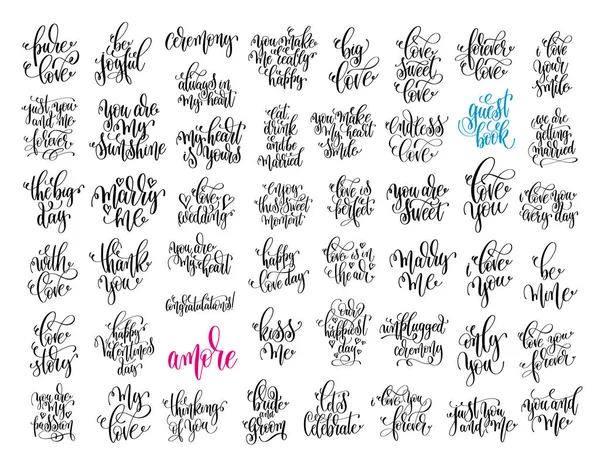 pure
love
be
joyful
ceremony
you make
me really
happy
big
love
love
sweet
love
forever
love
i love
your
smile
just you
and me
forever
you are
my
sunshine
always in
my heart
my heart
is yours
eat
drink
and be
married
you make
my heart
smile
endless
love
guest
book
we are
getting
married
the big
day
marry
me
love
wedding
enjoy
this sweet
moment
love is
perfect
you are
sweet
love
you
love you
every day
with
love
thank
you
you are
my heart
congratulations!
happy
love day
love is in
the air
marry
me
i love
you
be
mine
love
story
happy
Valentine's
day
amore
kiss
me
our
happiest
day
unplugged
ceremony
only
you
love you
forever
you are
my
passion
my
love
thinking
of you
bride
and
groom
let's
celebrate
i love you
forever
just you
and me
you and
me